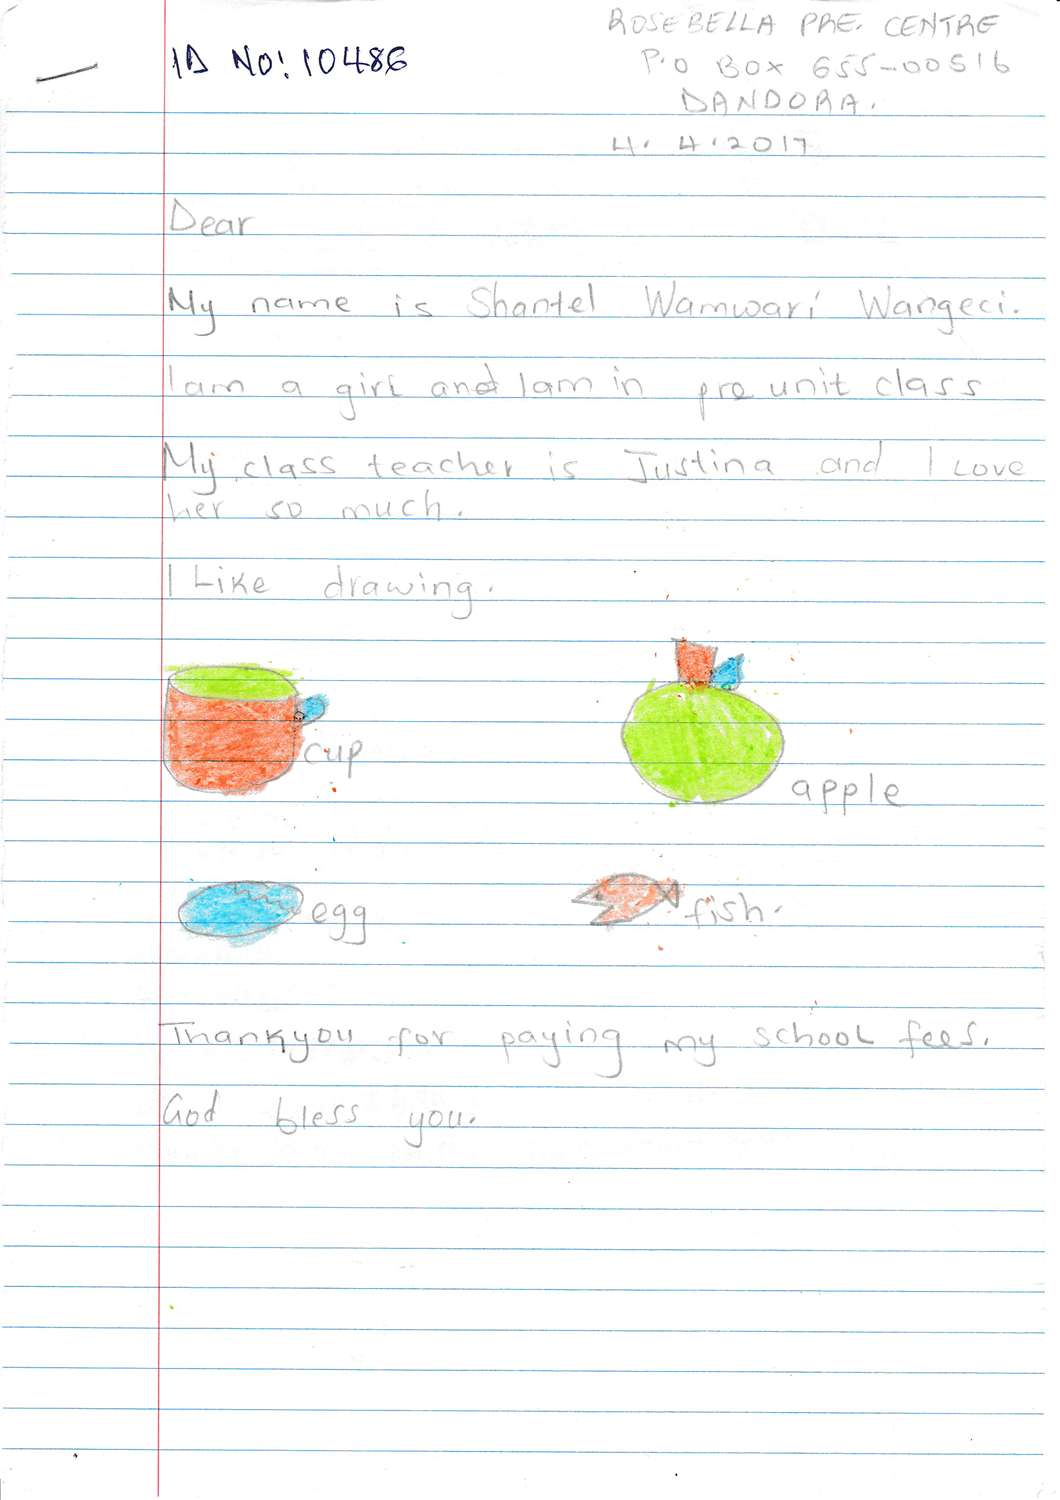 ID NO: 10486
ROSEBELLA PRE. CENTRE
P.O BOX 655-00516
DANDORA.
4. 4. 2017
Dear
My name is Shantel Wamwari Wangeci.
I am a girl and I am in pre unit class
My class teacher is Justina and I Love
her so much.
I Like drawing.
cup
apple
egg
fish.
Thankyou for paying my school fees.
God bless you.